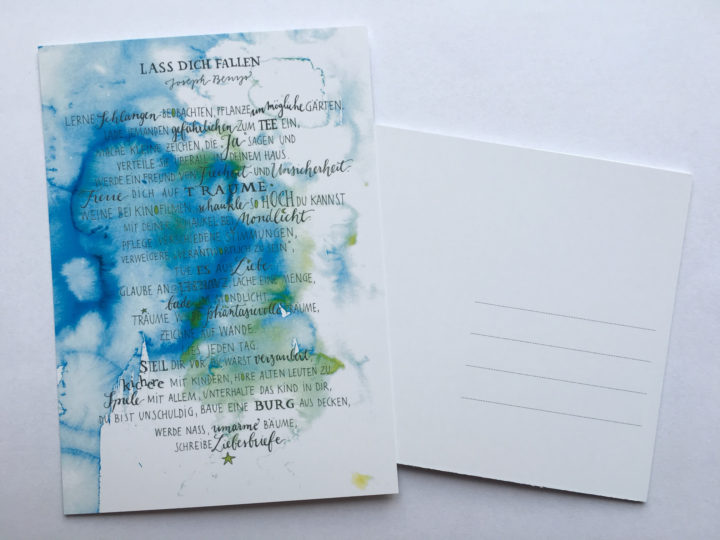 LASS DICH FALLEN
Joseph Beuys
LERNE Schlangen BEOBACHTEN, PFLANZE unmögliche GÄRTEN.
LADE JEMANDEN gefährlichen ZUM TEE EIN,
MACHE KLEINE ZEICHEN, DIE „Ja“ SAGEN UND
VERTEILE SIE ÜBERALL IN DEINEM HAUS.
WERDE EIN FREUND VON Freiheit UND Unsicherheit.
Freue DICH AUF TRÄUME.
WEINE BEI KINOFILMEN, schaukle SO HOCH DU KANNST
MIT DEINER SCHAUKEL BEI Mondlicht.
PFLEGE VERSCHIEDENE STIMMUNGEN,
VERWEIGERE „VERANTWORTLICH ZU SEIN“,
TUE ES AUS Liebe.
GLAUBE AN ZAUBEREI, LACHE EINE MENGE,
bade IM MONDLICHT.
TRÄUME WILDE phantasievolle TRÄUME,
ZEICHNE AUF WÄNDE.
LIES JEDEN TAG.
STELL DIR VOR DU WÄRST verzaubert.
Kichere MIT KINDERN, HÖRE ALTEN LEUTEN ZU.
Spiele MIT ALLEM, UNTERHALTE DAS KIND IN DIR,
DU BIST UNSCHULDIG, BAUE EINE BURG AUS DECKEN,
WERDE NASS, umarme BÄUME,
SCHREIBE Liebesbriefe.